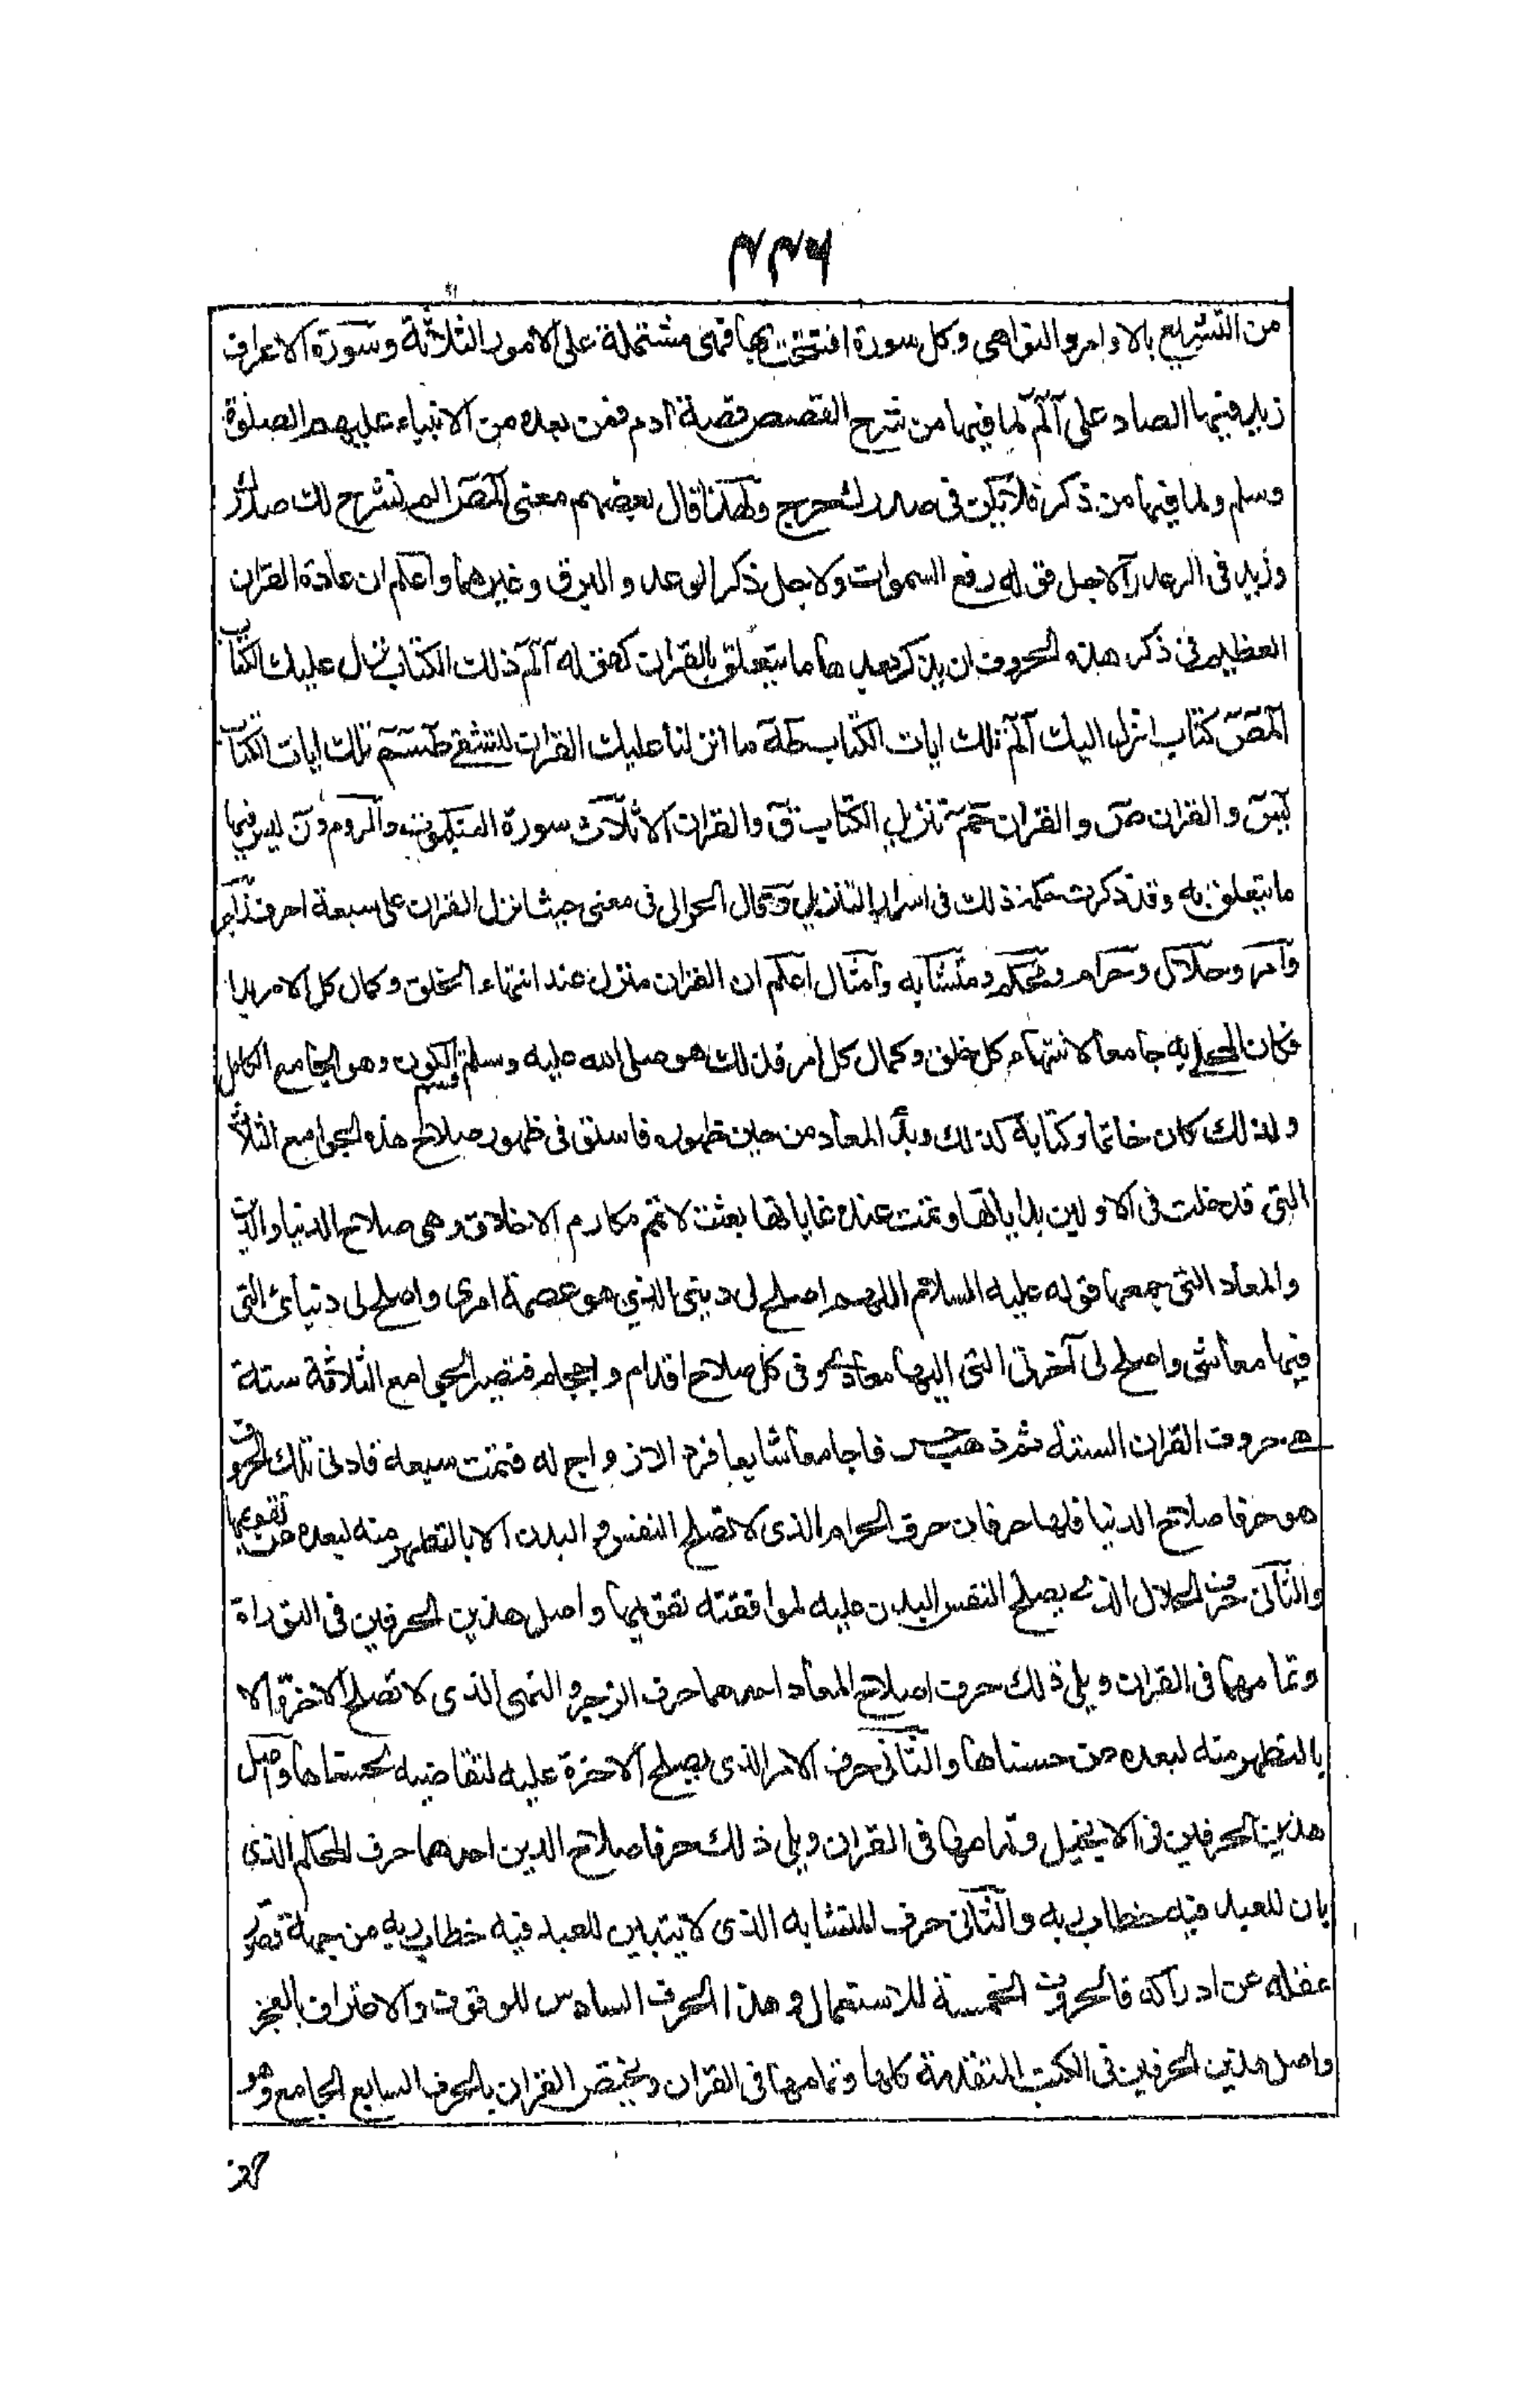 ٤٣٦
من التشريع بالاوامر والنواهى وكل سورة افتتحت بها فهى مشتملة على الامور الثلاثة وسورة الاعراف
زيد فيها الصاد على آلم لما فيها من شرح القصص قصة آدم فمن بعده من الانبياء عليهم الصلوة
وسلم ولما فيها من ذكر فلا يكن فى صدرك حرج ولهذا قال بعضهم معنى المص الم نشرح لك صدرك
وزيد فى الرعد رآ لاجل قوله رفع السموات ولاجل ذكر الرعد والبرق وغيرهما واعلم ان عادة القران
العظيم فى ذكر هذه الحروف ان يذكر بعدها ما يتعلق بالقران كقوله آلم ذلك الكتاب نزل عليك الكتاب
المص كتاب انزل اليك آلم تلك ايات الكتاب طه ما انزلنا عليك القران لتشقى طسم تلك ايات الكتاب
يس والقران ص والقران حم تنزيل الكتاب ق والقران الا ثلاث سورة العنكبوت والروم ون ليس فيها
ما يتعلق به وقد ذكرت حكمة ذلك فى اسرار التنزيل وقال الحرالى فى معنى حديث انزل القران على سبعة احرف زاجر
وآمر وحلال وحرام ومحكم ومتشابه وامثال اعلم ان القران منزل عند انتهاء الخلق وكمال كل الامر بدا
فكان المتحلى به جامعا لانتهاء كل خلق وكمال كل امر فلذلك هو صلى الله عليه وسلم قسيم الكون وهو الجامع الكامل
ولذلك كان خاتما وكتابه كذلك وبدأ المعاد من حين ظهوره فاستوفى فى ظهور صلاح هذه الجوامع الثلاث
التى قد خلت فى الاولين بداياتها وتمت عنده غاياتها بعثت لاتمم مكارم الاخلاق وهى صلاح الدنيا والدين
والمعاد التى جمعها قوله عليه السلام اللهم اصلح لى دينى الذى هو عصمة امرى واصلح لى دنياى التى
فيها معاشى واصلح لى آخرتى التى اليها معادى وفى كل صلاح اقدام واحجام فتصير الجوامع الثلاثة ستة
هى حروف القران الستة ثم وهب حرفا جامعا سابعا فردا لا زواج له فتمت سبعة فادنى تلك الحروف
هو حرفا صلاح الدنيا فلها حرفان حرف الحرام الذى لا تصلح النفس والبدن الا بالتطهر منه لبعده عن تقويمها
والثانى حرف الحلال الذى يصلح النفس والبدن عليه لموافقته تقويمها واصل هذين الحرفين فى التوراة
وتمامهما فى القران ويلى ذلك حرف اصلاح المعاد احدهما حرف الزجر والنهى الذى لا تصلح الاخرة الا
بالتطهر منه لبعده عن حسناها والثانى حرف الامر الذى يصلح الاخرة عليه لتقاضيه لحسناها واصل
هذين الحرفين فى الانجيل وتمامهما فى القران ويلى ذلك حرفا صلاح الدين احدهما حرف المحكم الذى
بان للعبد فيه خطاب ربه والثانى حرف المتشابه الذى لا يتبين للعبد فيه خطاب ربه من جهة قصور
عقله عن ادراكه فالحروف الخمسة للاستعمال وهذا الحرف السادس للوقوف والاعتراف بالعجز
واصل هذين الحرفين فى الكتب المتقدمة كلها وتمامهما فى القران ويختص القران بالحرف السابع الجامع وهو